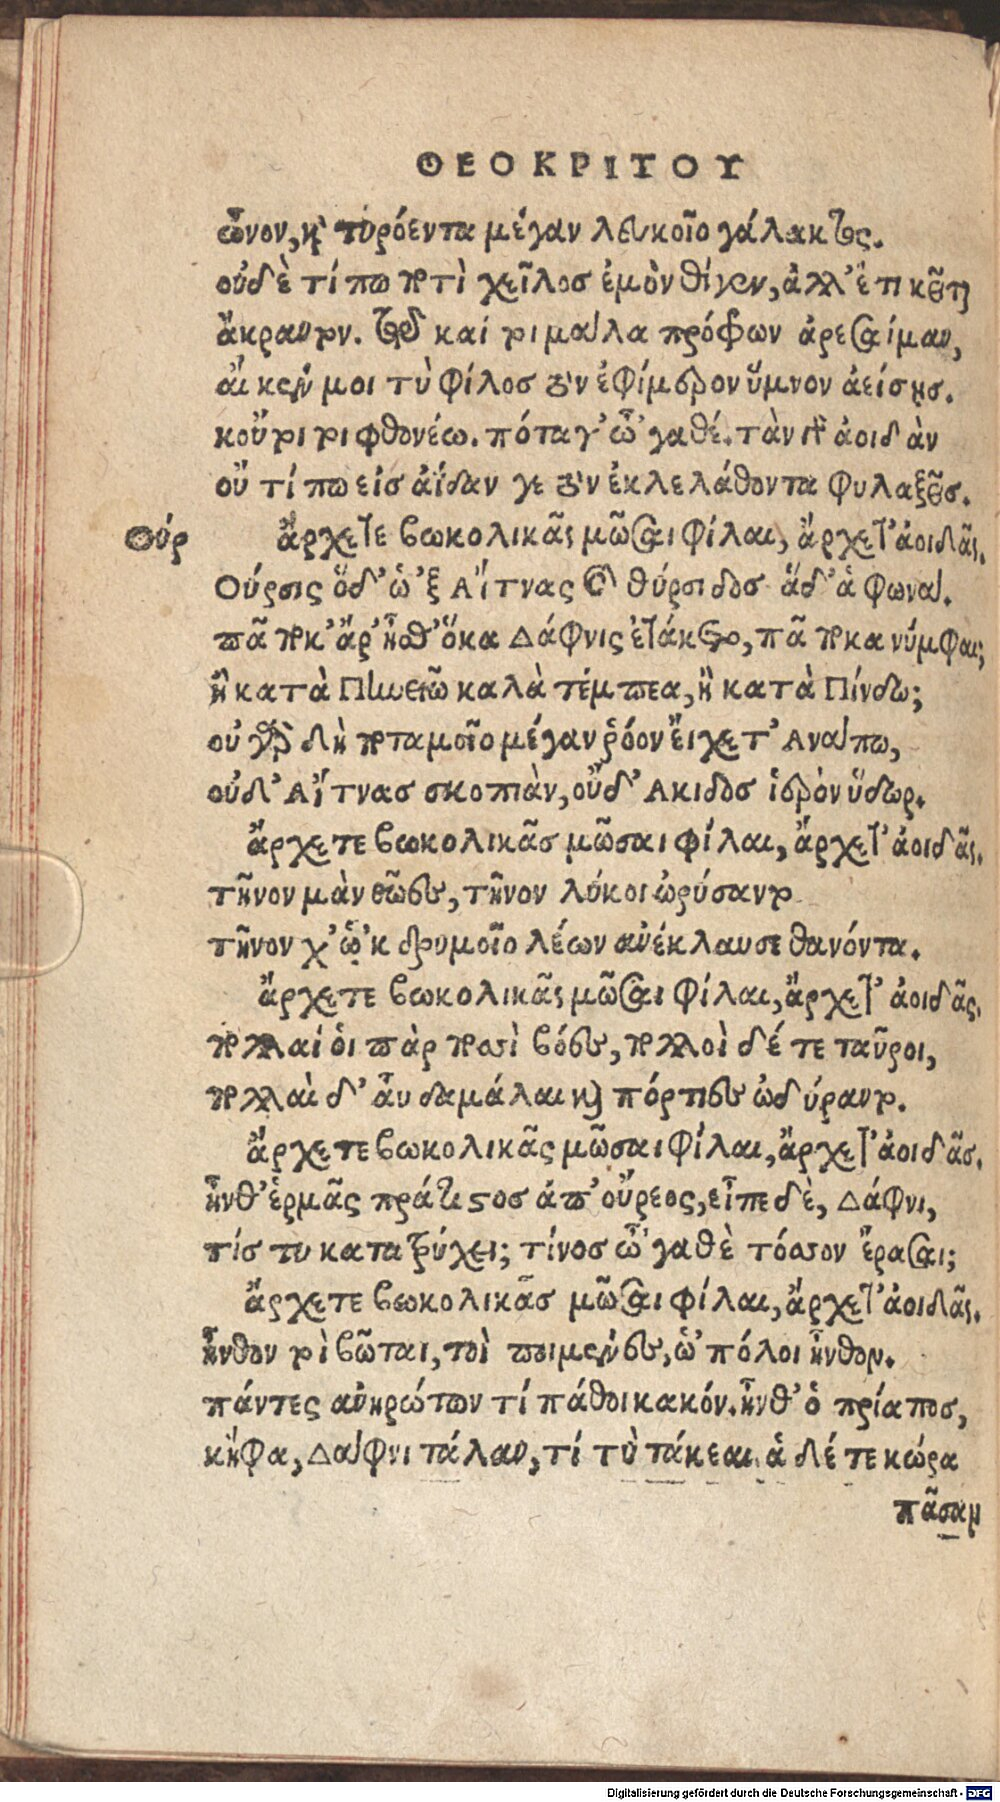 ΘΕΟΚΡΙΤΟΥ
ὦνον, καὶ τυρόεντα μέγαν λευκοῖο γάλακτος.
οὐδὲ τί πω ποτὶ χεῖλος ἐμὸν θίγεν, ἀλλ' ἔτι κεῖται
ἄχραντον. τῷ καί τοι μάλα πρόφρων ἀρεσαίμαν,
αἴ κέν μοι τὺ φίλος τὸν ἐφίμερον ὕμνον ἀείσῃς.
κοὔ τοι τι φθονέω. πόταγ' ὦ' γαθέ. τὰν γὰρ ἀοιδὰν
οὔ τί πω εἰς ἀΐδαν γε τὸν ἐκλελάθοντα φυλαξεῖς.
Θύρ ἄρχετε βωκολικᾶς μῶσαι φίλαι, ἄρχετ' ἀοιδᾶς.
Θύρσις ὅδ' ὡ' ξ Αἴτνας καὶ θύρσιδος ἅδ' ἁ φωνά.
πᾶ ποκ' ἄρ' ἦσθ' ὅκα Δάφνις ἐτάκετο, πᾶ ποκα νύμφαι;
ἢ κατὰ Πηνειῶ καλὰ τέμπεα, ἢ κατὰ Πίνδω;
οὐ γὰρ δὴ ποταμοῖο μέγαν ῥόον εἴχετ' Ανάπω,
οὐδ' Αἴτνας σκοπιὰν, οὔδ' Ακιδος ἱερὸν ὕδωρ.
ἄρχετε βωκολικᾶς μῶσαι φίλαι, ἄρχετ' ἀοιδᾶς.
τῆνον μὰν θῶες, τῆνον λύκοι ὠρύσαντο
τῆνον χ' ὡ' κ δρυμοῖο λέων ἀνέκλαυσε θανόντα.
ἄρχετε βωκολικᾶς μῶσαι φίλαι, ἄρχετ' ἀοιδᾶς.
πολλαί οἱ πὰρ ποσὶ βόες, πολλοὶ δέ τε ταῦροι,
πολλαὶ δ' αὖ δαμάλαι καὶ πόρτιες ὠδύραντο.
ἄρχετε βωκολικᾶς μῶσαι φίλαι, ἄρχετ' ἀοιδᾶς.
ἦνθ' ἑρμᾶς πράτιστος ἀπ' οὔρεος, εἶπε δὲ, Δάφνι,
τίς τυ κατατρύχει; τίνος ὦ' γαθὲ τόσσον ἔρασαι;
ἄρχετε βωκολικᾶς μῶσαι φίλαι, ἄρχετ' ἀοιδᾶς.
ἦνθον τοὶ βῶται, τοὶ ποιμένες, ᾡ' πόλοι ἦνθον.
πάντες ἀνηρώτων τί πάθοι κακόν. ἦνθ' ὁ πρίαπος,
κἤφα, Δάφνι τάλαν, τί τὺ τάκεαι, ἁ δέ τε κώρα
πᾶσαν
Digitalisierung gefördert durch die Deutsche Forschungsgemeinschaft - DFG